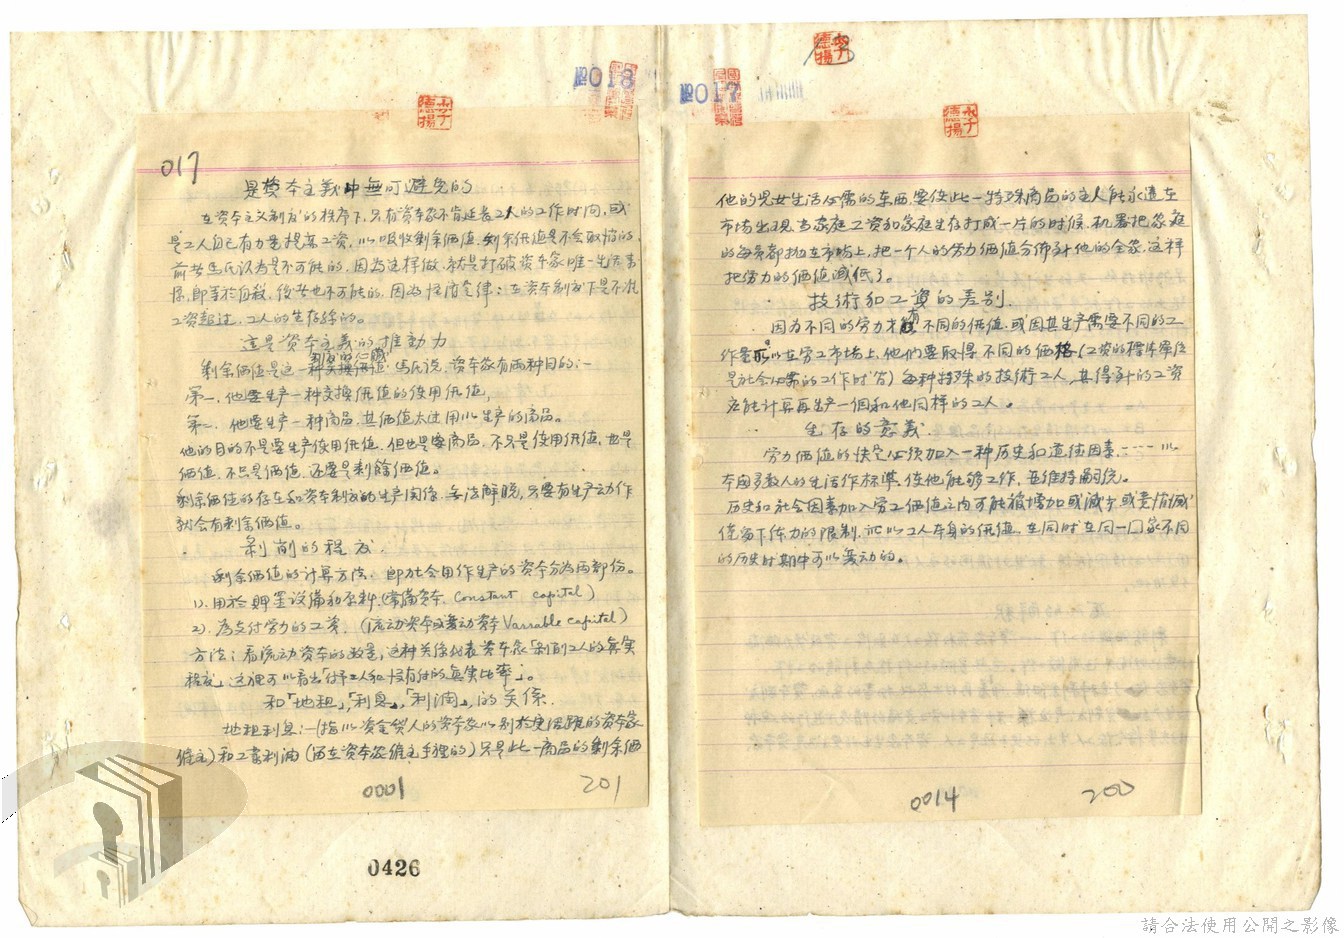 №018
№017
李德揚
李德揚
李德揚
017
是資本主義中無可避免的
在資本主义制度的秩序下,只有資本家不肯延長工人的工作时间,或
是工人自己有力量提高工資,以吸收剩余価值.剩余価值是不会取消的,
前者馬氏认为是不可能的,因为这样做,就是打破資本家唯一生活書
源,即等於自殺,後者也不可能的,因为经濟定律:在資本制度下是不准
工資超过,工人的生存線的。
這是資本主義的推動力
剩余価值是这一种 馬氏说,資本家有两种目的:—
第一,他要生产一种交換価值的使用価值,
第二,他要生产一种商品,其価值大过用以生产的商品。
他的目的不是要生产使用価值,但也是要商品,不只是使用価值,也是
価值,不只是価值,还要是剩餘価值。
剩余価值的存在和資本制度的生产関係,無法解脱,只要有生产动作
就会有剩余価值。
剝削的程度.
剩余価值的计算方法,即社会用作生产的資本分为两部份。
1).用於購置设備和原料.(常備資本. Constant capital)
2).为支付劳力的工資.(流动資本或変动資本Variable capital)
方法:看流动資本的数量,这种关係代表資本家「剝削工人的真実
程度」,这裡可以看出「付予工人和没有付的真実比率」。
和「地租」,「利息」,「利润」,的关係.
地租利息:—(指以資金貸人的資本家以别於 的資本家
僱主)和工業利润(留在資本家僱主手裡的)只是此一商品的剩余価
0001
201
他的児女生活必需的东西,要使此一特殊商品的主人能永遠在
市场出现,当家庭工資和家庭生存打成一片的时候,机器把家庭
的每員都抛在市場上,把一个人的劳力価值分佈到他的全家,这样
把劳力的価值减低了。
技術和工資的差别.
因为不同的劳力才有不同的価值,或因其生产需要不同的工
作量,所以在劳工市场上,他们要取得不同的価格(工資的標準單位
是社会必需的工作时间)每种特殊的技術工人,其得到的工資
应能计算再生产一個和他同样的工人。
生存的意義
劳力価值的决定必须加入一种历史和道德因素.----以
本國多数人的生活作标準,使他能够工作,並维持傳统。
历史和社会因素加入劳工価值之内可能被增加或减少,或竟消减
僅留下体力的限制,所以工人本身的価值,在同时在同一国家不同
的历史时期中可以変动的。
0014
200
0426
請合法使用公開之影像